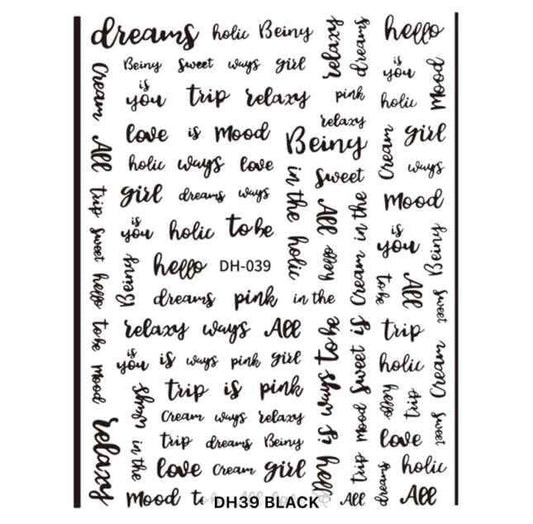 dreams holic Being
Being sweet ways girl
is you trip relaxy
love is mood
holic ways love
girl dreams ways
is you holic to be
hello DH-039
dreams pink in the
relaxy ways All
is you is ways pink girl
trip is pink
Cream ways relaxy
trip dreams Being
love Cream girl
mood
DH39 BLACK
Cream All trip sweet hello to be mood relaxy
Being
ways in the
relaxy dreams
pink
relaxy
Being
sweet
in the holic
All hello
Cream in the
hey is ways to be
trip mood sweet is
All
hello
is you mood
holic
Cream girl
ways
mood
is you Being
to be All sweet
trip
holic
Cream
hello trip
love sweet
dreams holic
All